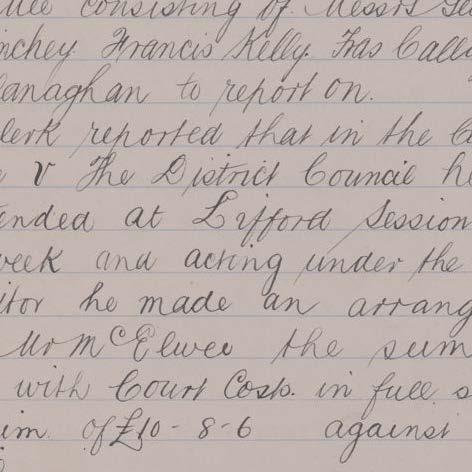 ttee consisting of Messrs Ge
nchey Francis Kelly. Fras Call
lanaghan to report on.
lerk reported that in the C
e V The District Council he
ended at Lifford Session
week and acting under the
itor he made an arrang
Mr McElwee the sum
with Court Costs. in full s
im of £10-8-6 against